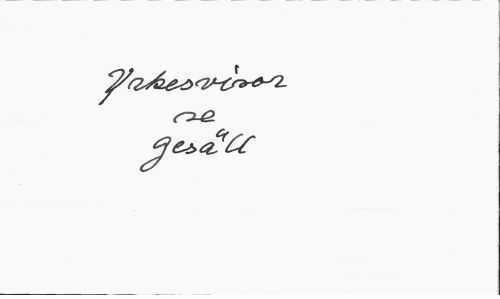 Yrkesvisor
se
gesäll